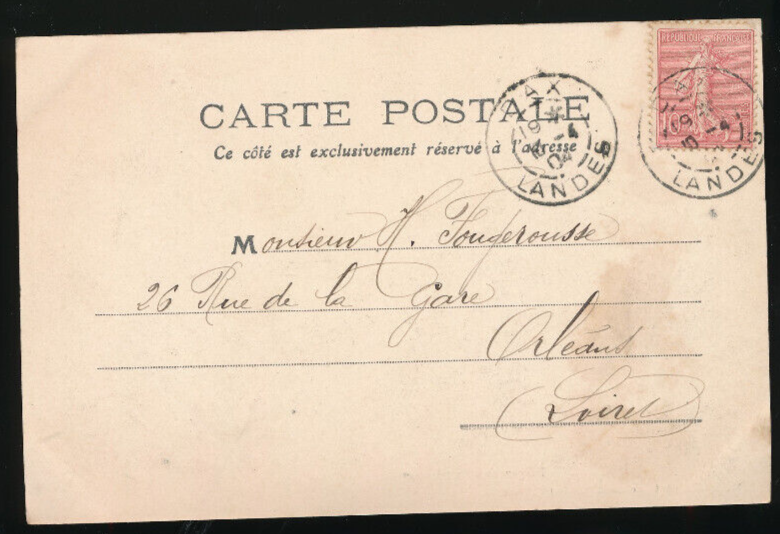 RÉPUBLIQUE FRANÇAISE
CARTE POSTALE
Ce côté est exclusivement réservé à l'adresse
DAX
04
LANDES
LANDES
Monsieur H. Fougerousse
26 Rue de la Gare
Orléans
(Loiret)